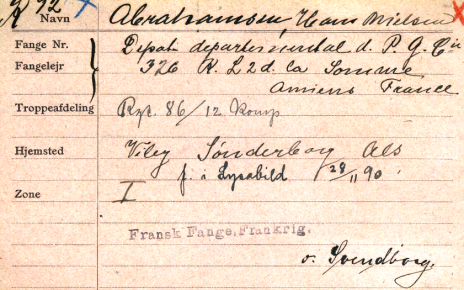 92
Navn Abrahamsen, Hans Nielsen
Fange Nr. Depot departemental d. P. G. Cie
Fangelejr 326 R. L 2 d. La Somme
Amiens France
Troppeafdeling Rgt. 86/12 Komp
Hjemsted Sønderborg Als
f. i Lysabild 28/11 90.
Zone I
Fransk Fange, Frankrig.
v. Svendborg.